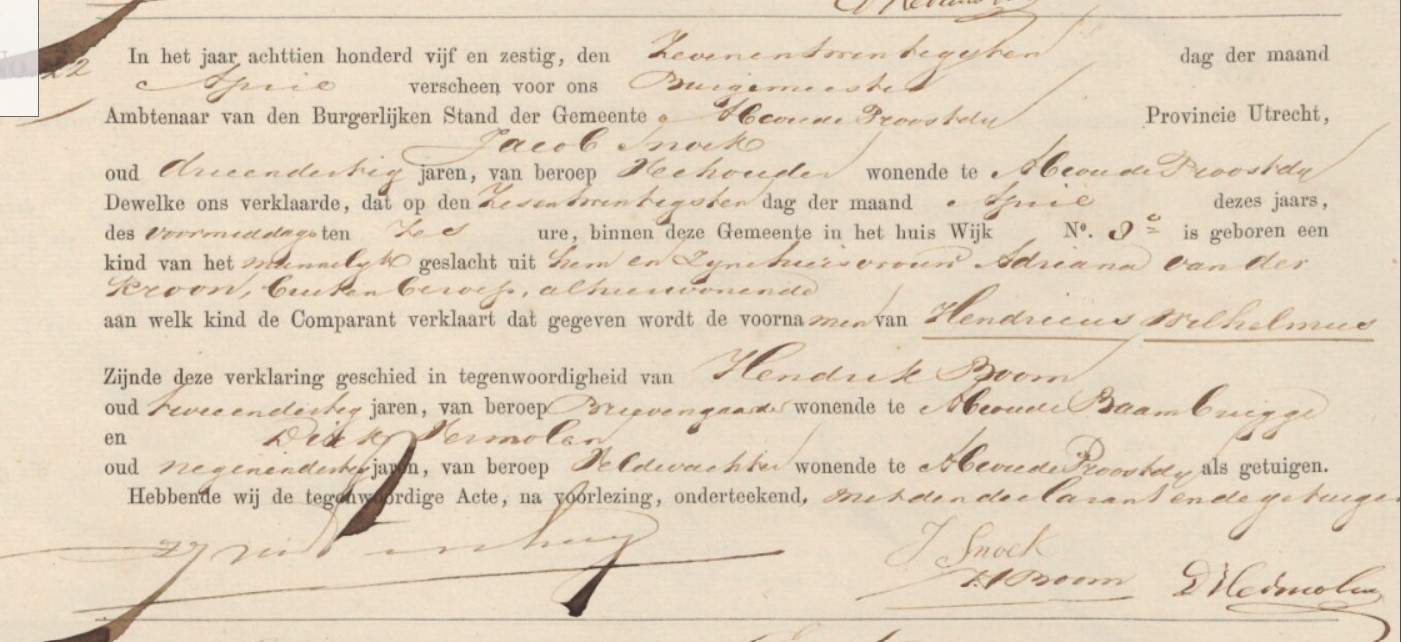 22
In het jaar achttien honderd vijf en zestig, den Zevenentwintigsten dag der maand
April verscheen voor ons Burgemeester
Ambtenaar van den Burgerlijken Stand der Gemeente Abcoude Proostdy Provincie Utrecht,
Jacob Snoek
oud drieendertig jaren, van beroep Veehouder wonende te Abcoude Proostdy
Dewelke ons verklaarde, dat op den Zesentwintigsten dag der maand April dezes jaars,
des voormiddags ten Zes ure, binnen deze Gemeente in het huis Wijk No. 8 is geboren een
kind van het mannelyk geslacht uit hem en Zyne huisvrouw Adriana van der
Kroon, buiten beroep, alhier wonende
aan welk kind de Comparant verklaart dat gegeven wordt de voornamen van Hendricus Wilhelmus
Zijnde deze verklaring geschied in tegenwoordigheid van Hendrik Boom
oud tweeendertig jaren, van beroep Brievengaarder wonende te Abcoude Baambrugge
en Dirk Vermolen
oud negenendertig jaren, van beroep Veldwachter wonende te Abcoude Proostdy als getuigen.
Hebbende wij de tegenwoordige Acte, na voorlezing, onderteekend, met den declarant en de getuigen
J Snoek
H Boom
D Vermolen